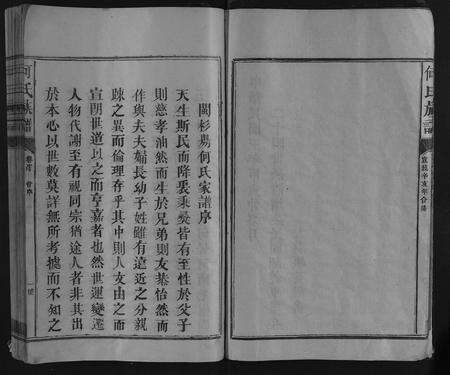 何氏族譜
宣統辛亥年合修
閩杉易何氏家譜序
天生斯民而降衷秉彜皆有至性於父子
則慈孝油然而生於兄弟則友恭怡然而
作與夫夫婦長幼子姓雖有遠近之分親
疎之異而倫理存乎其中則人文由之而
宣朗世道以之而亨嘉者也然世運變遷
人物代謝至有視同宗猶途人者非其出
於本心以世數莫詳無所考據而不知之
何氏族譜
卷首 會序